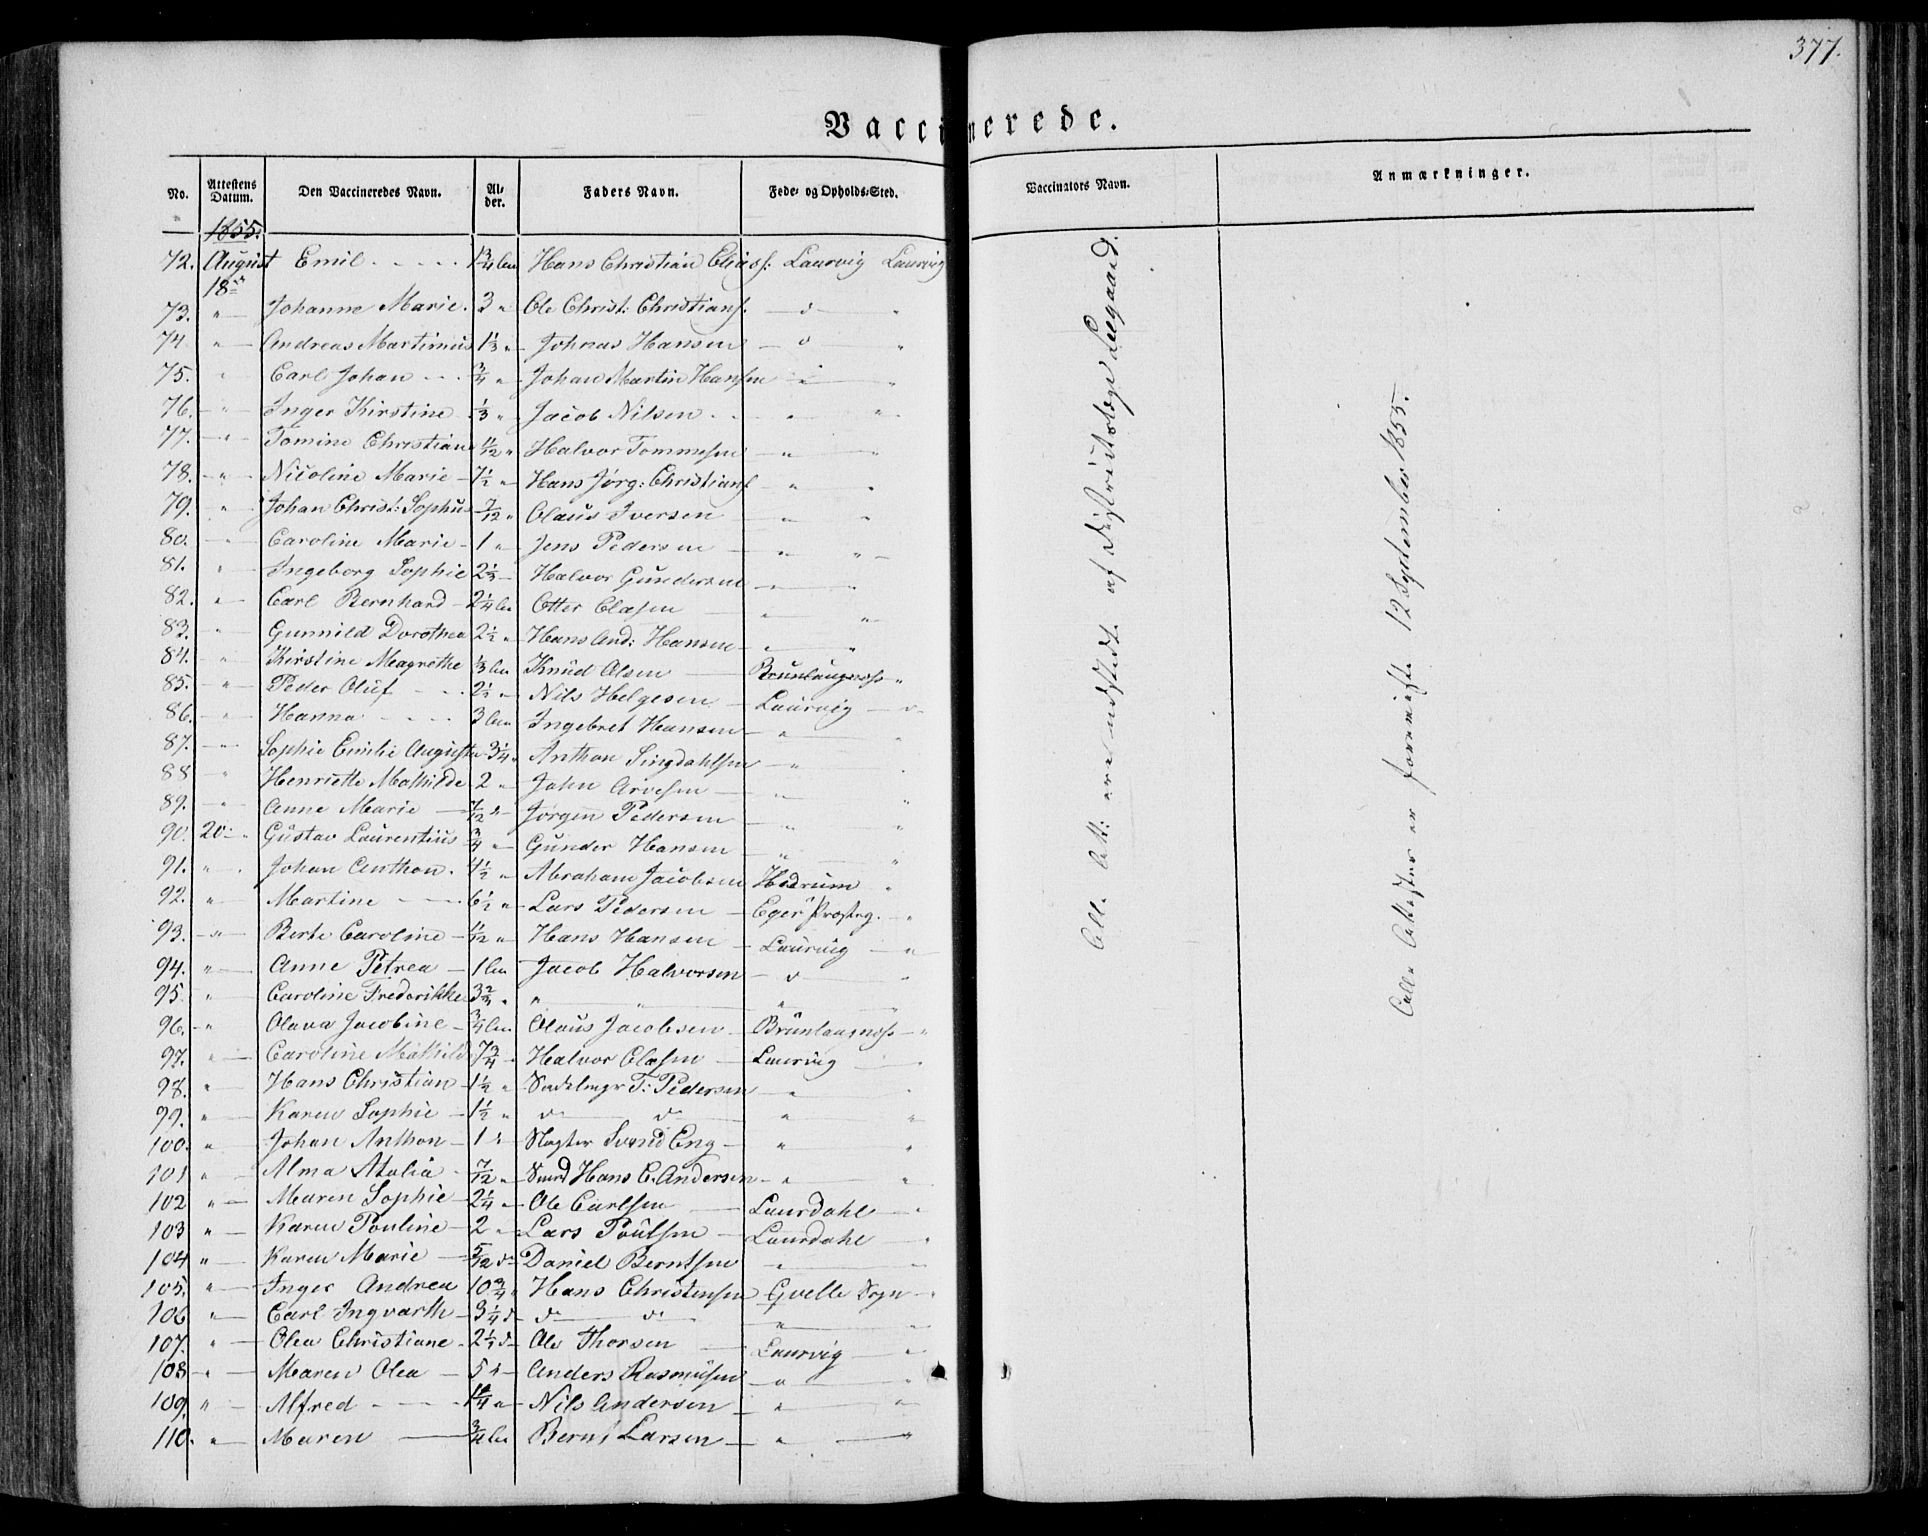 377.
Vaccinerede.
No. Attestens Datum. Den Vaccineredes Navn. Alder. Faders Navn. Føde- og Opholds-Sted. Vaccinators Navn. Anmærkninger.
1855.
72. August 18de Emil 1 3/4 Hans Christian Eliass: Laurvig Laurvig
73. " Johanne Marie. 3 " Ole Christ: Christians. d "
74. " Andreas Martinius 1 1/3 " Johnas Hansen d "
75. " Carl Johan 3/4 " Johan Martin Hansen " "
76. " Inger Kirstine 1/3 " Jacob Nilsen " "
77. " Tomine Christiane 11/12 " Halvor Tommesen " "
78. " Nicoline Marie 7 1/2 " Hans Jørg: Christians " "
79. " Johan Christ: Sophus 7/12 " Olaus Iversen " "
80. " Caroline Marie 1 " Jens Pedersen " "
81. " Ingeborg Sophie 2 1/3 Halvor Gundersen " "
82. " Carl Bernhard 2 1/4 Otter Olesen " "
83. " Gunnild Dorothea 2 1/2 " Hans And: Hansen " "
84. " Kirstine Magrethe 1/3 Knud Olsen Brunlaugnæss "
85. " Peder Oluf 2 1/2 " Nils Helgesen Laurvig d
86. " Hanna 3 Ingebret Hansen " "
87. " Sophie Emilie Augusta 3 1/4 " Anthon Singdahlsen " "
88 " Henriette Mathilde 2 " John Arvesen " "
89. " Anne Marie 7/12 " Jørgen Pedersen " "
90. 20 " Gustav Laurentius 3/4 " Gunder Hansen " "
91. " Johan Anthon. 4 1/2 " Abraham Jacobsen Hedrum "
92. " Martine 6 1/2 " Lars Pedersen Eger Præsteg. "
93. " Berte Caroline 11/12 " Hans Hansen Laurvig "
94. " Anne Petrea 1 Jacob Halvorsen d "
95. " Caroline Frederikke 3 " " " " "
96. " Olava Jacobine 3/4 Olaus Jacobsen Brunlaugnæss "
97. " Caroline Mathilde 7 3/4 Halvor Olesen Laurvig "
98. " Hans Christian 1 1/2 " Sadelmgr T: Pedersen " "
99. " Karen Sophie 1 1/2 " d d " "
100. " Johan Anthon 1 " Slagter Svend Eng " "
101 " Alma Atalia 7/12 " Smed Hans C. Andersen " "
102 " Maren Sophie 2 1/4 " Ole Carlsen Laurdahl "
103 " Karen Pouline 2 " Lars Poulsen Laurdahl "
104 " Karen Marie 5/12 d Daniel Berntsen " "
105. " Inger Andrea 10 3/4 " Hans Christensen Qvelle Sogn "
106 " Carl Ingvarth 3 1/4 d d d " "
107. " Olea Christiane 2 1/2 d Ole Thorsen Laurvig "
108 " Maren Olea 5 " Anders Rasmusen " "
109. " Alfred 1 1/4 " Nils Andersen " "
110. " Maren 3/4 Bernt Larsen " "
Alle Att: ere udstedte af Districtslæge Leegaard.
Alle Attester er foreviste 12 September 1855.